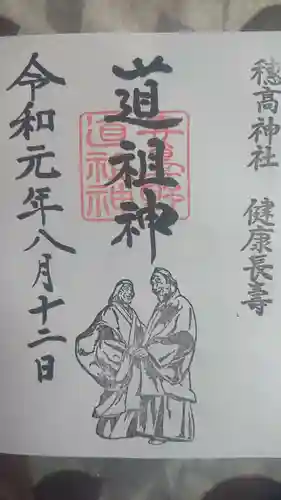 穂高神社 健康長寿
道祖神
令和元年八月十二日